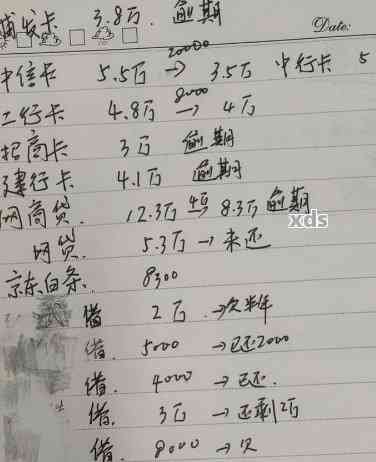 浦发卡 3.8万. 逾期
Date:
中信卡 5.5万 20000→ 3.5万 中行卡 5
工行卡 4.8万 8000→ 4万
招商卡 3万 逾期
建行卡 4.1万 逾期
网商贷. 12.3万 4万→ 8.3万 逾期
xds
网贷. 5.3万 → 未还
京东白条. 8300
借 2万 →欠半年
借. 5000 →已还2000
借. 4000 →已还.
借. 3万 →还剩2万
借. 8000 →欠